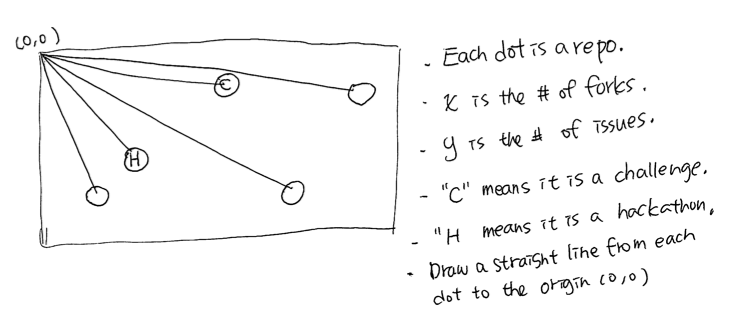 (0,0)
C
H
- Each dot is a repo.
- X is the # of forks.
- y is the # of issues.
- "C" means it is a challenge.
- "H means it is a hackathon.
- Draw a straight line from each
dot to the origin (0,0)